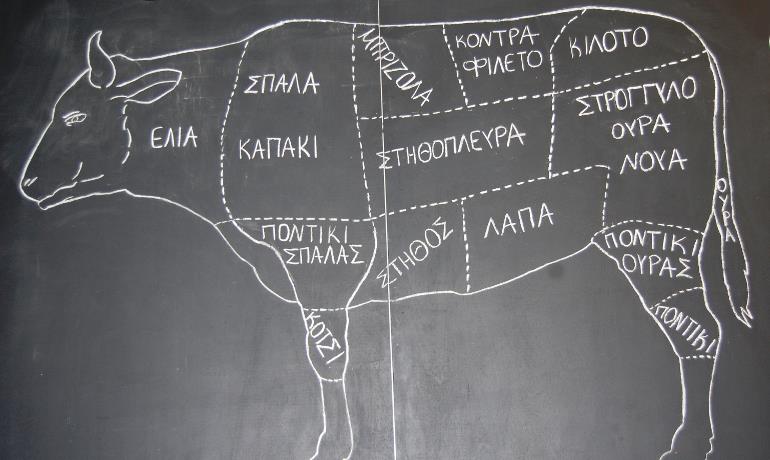 ΕΛΙΑ
ΣΠΑΛΑ
ΚΑΠΑΚΙ
ΠΟΝΤΙΚΙ
ΣΠΑΛΑΣ
ΚΟΤΣΙ
ΜΠΡΙΖΟΛΑ
ΚΟΝΤΡΑ
ΦΙΛΕΤΟ
ΚΙΛΟΤΟ
ΣΤΗΘΟΠΛΕΥΡΑ
ΣΤΡΟΓΓΥΛΟ
ΟΥΡΑ
ΝΟΥΑ
ΣΤΗΘΟΣ
ΛΑΠΑ
ΠΟΝΤΙΚΙ
ΟΥΡΑΣ
ΠΟΝΤΙΚΙ
ΟΥΡΑ